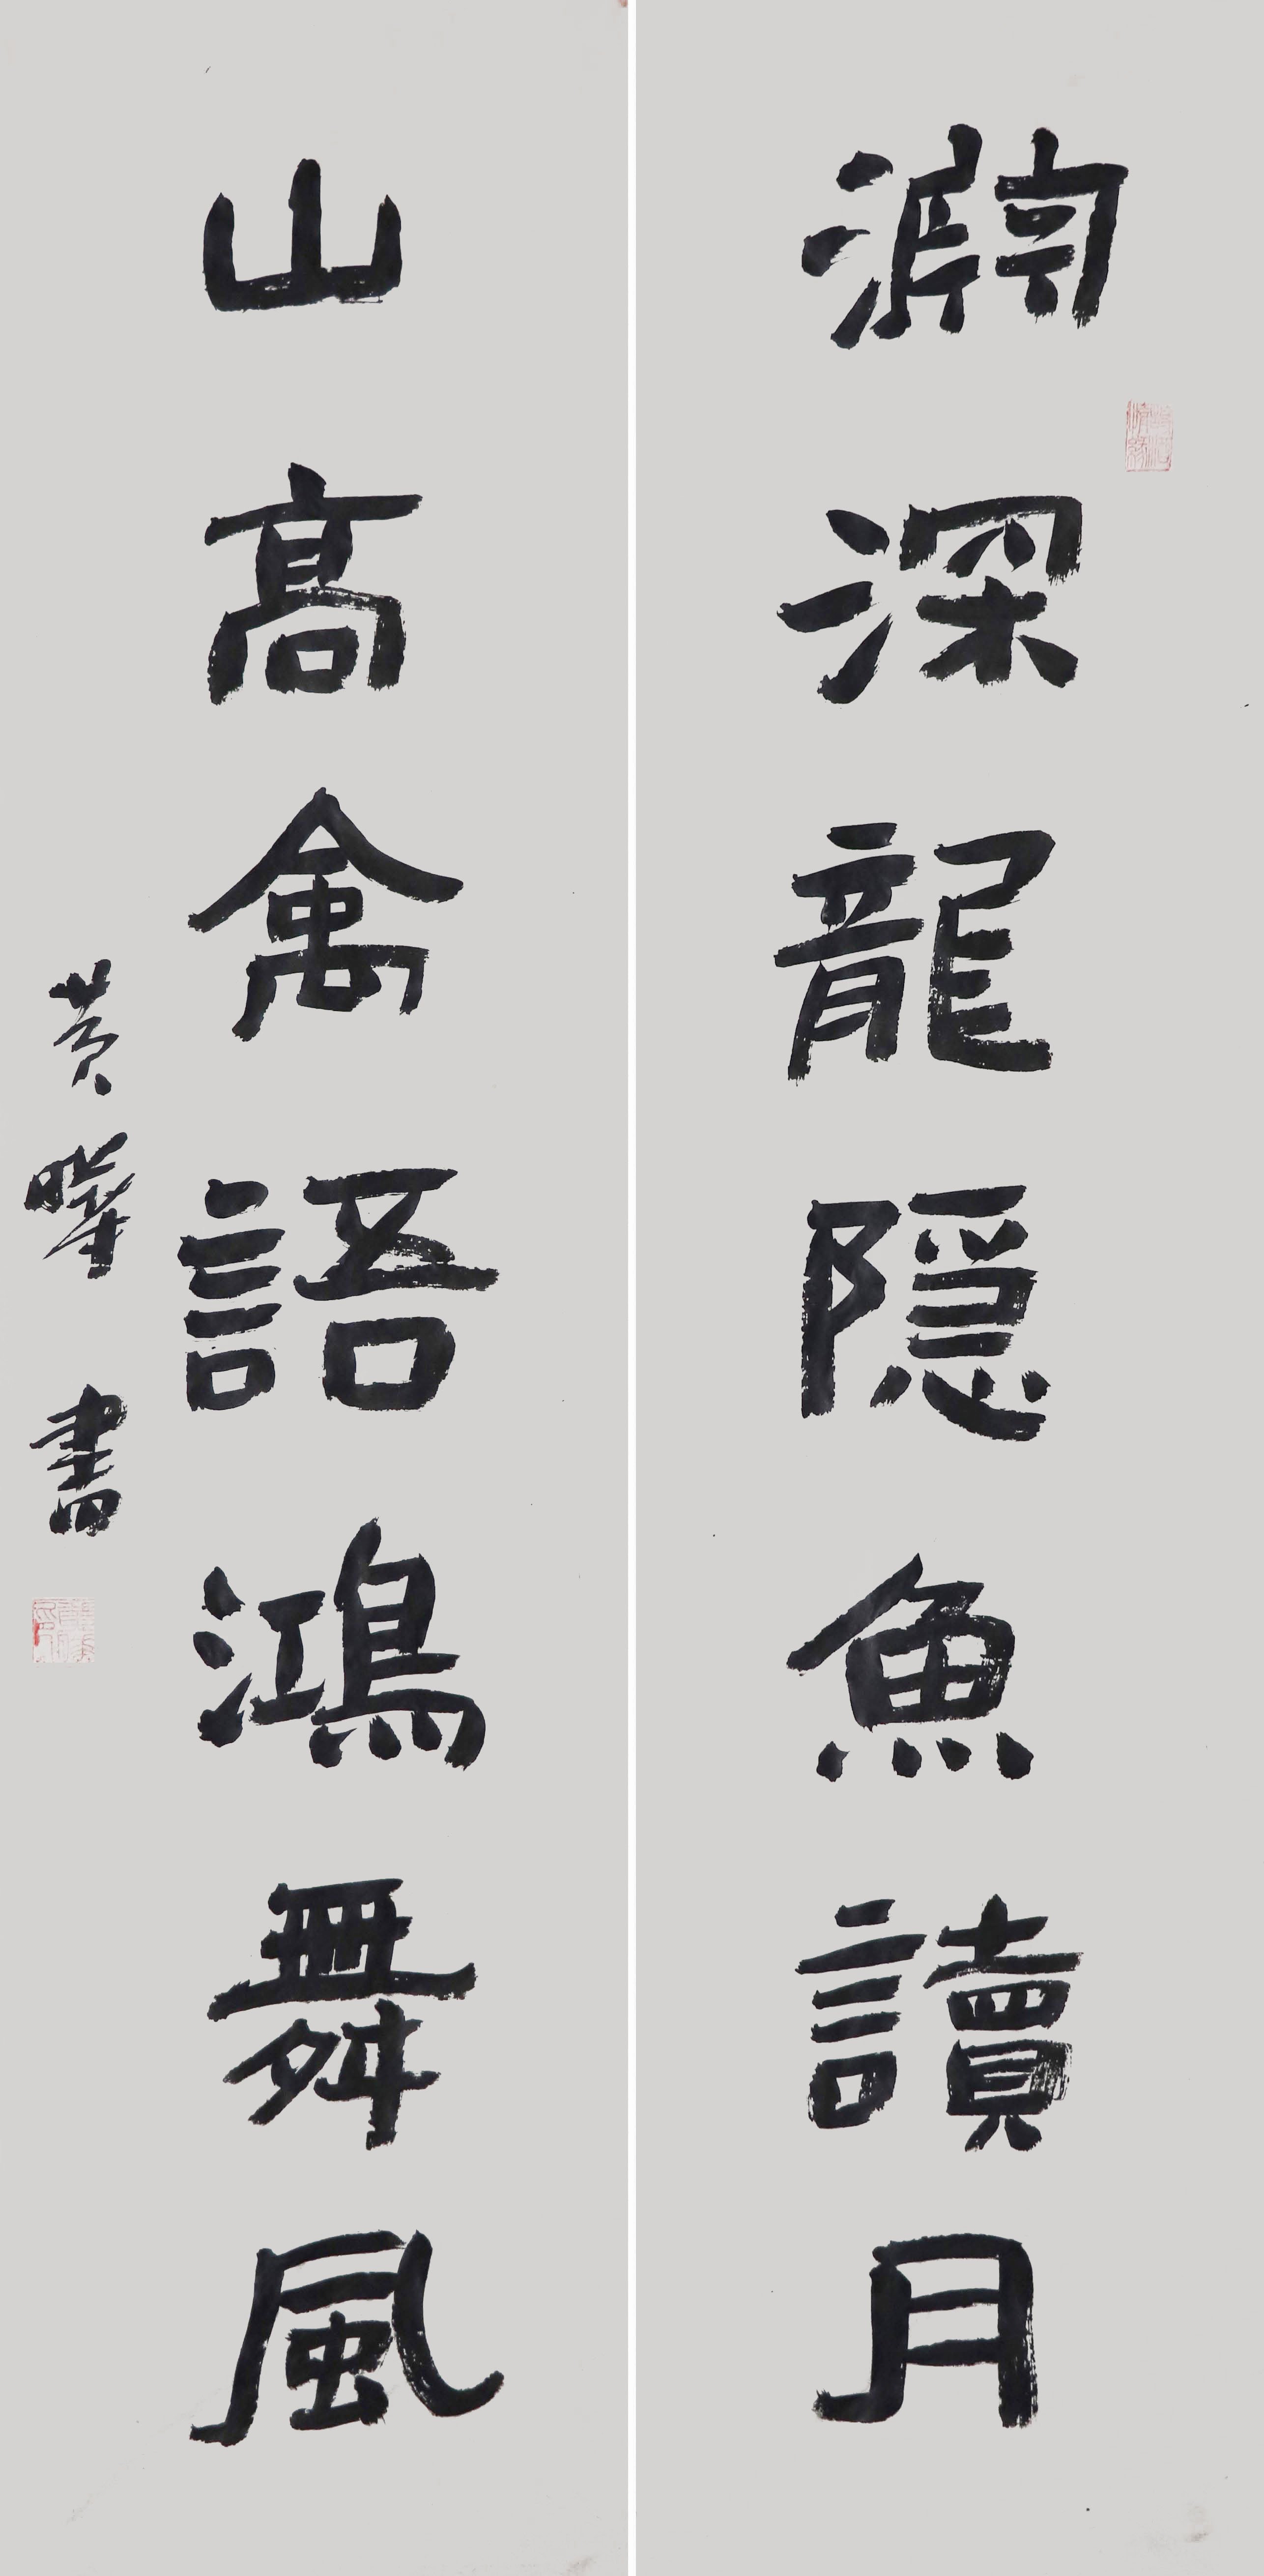 渊深龍隐魚讀月
山高禽語鴻舞風
黄曄書